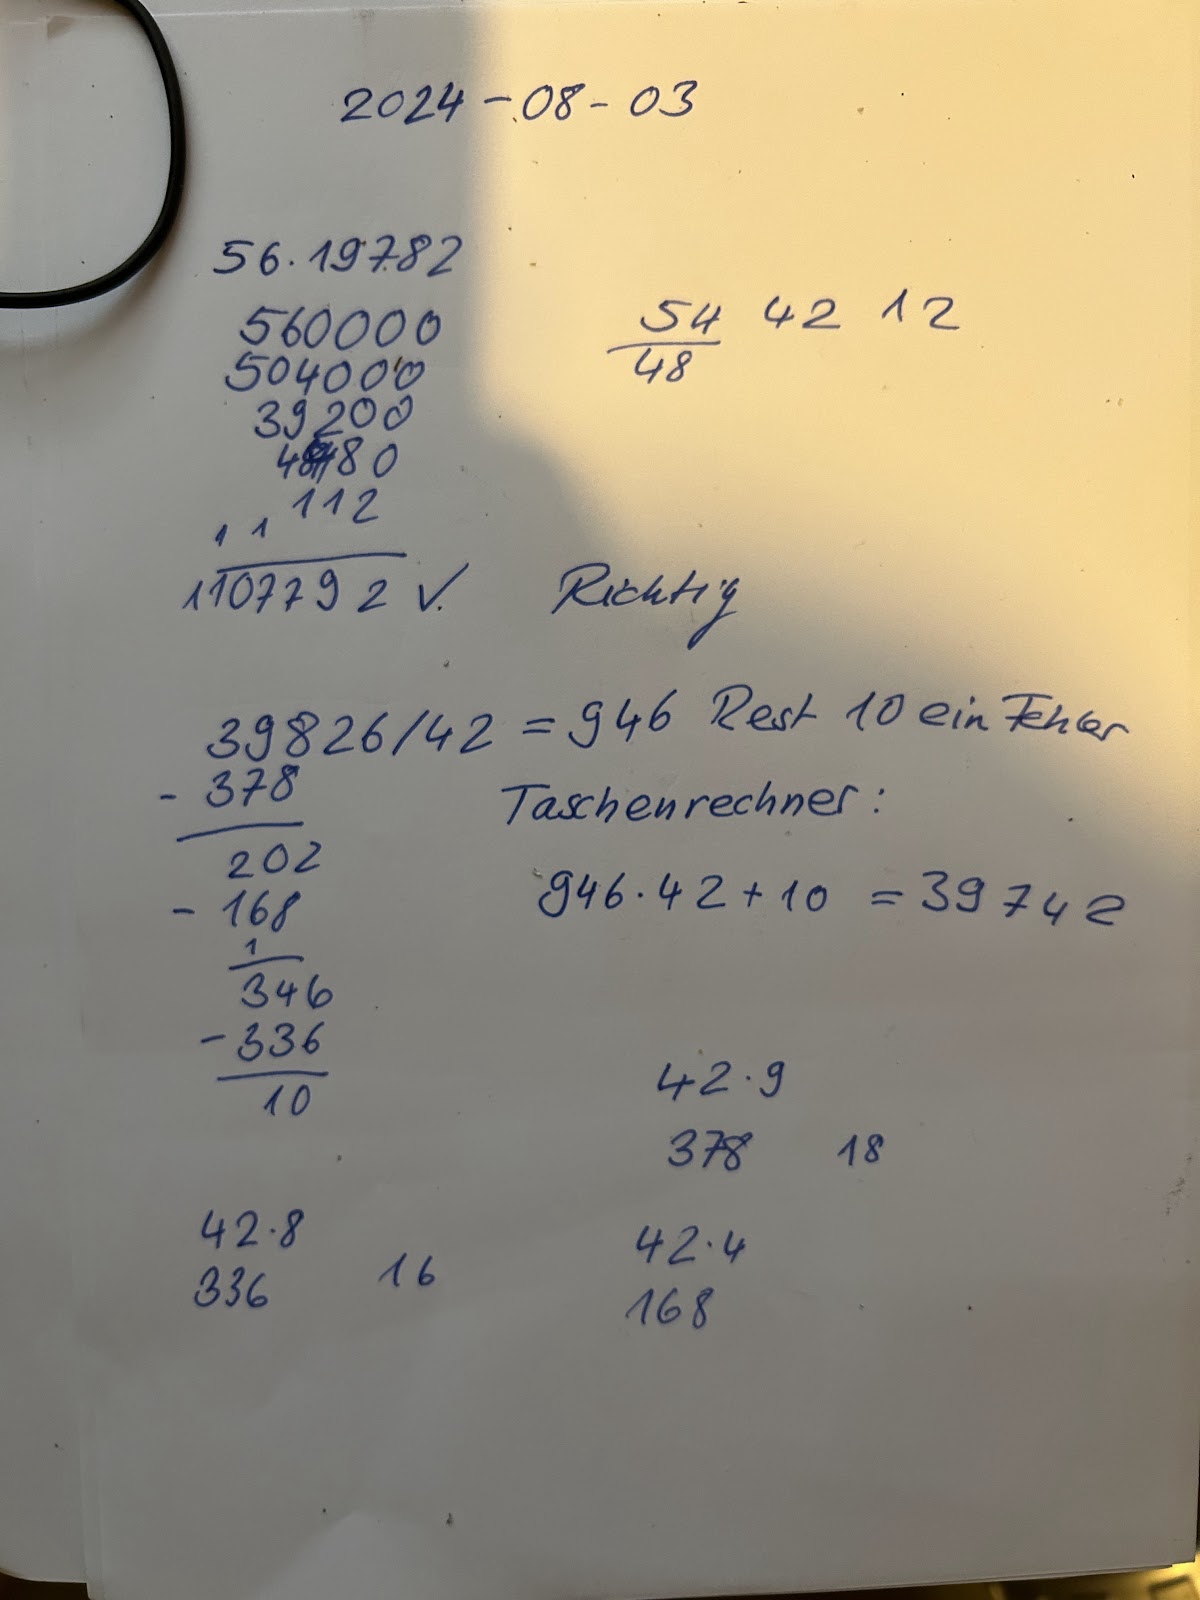 2024-08-03
56·19782
560000
504000
39200
4480
112
1 1
1107792 ✓.
Richtig
54 42 12
48
39826/42 = 946 Rest 10 ein Fehler
- 378
202
- 168
1
346
- 336
10
Taschenrechner:
946·42+10 = 39742
42·9
378 18
42·8
336 16
42·4
168